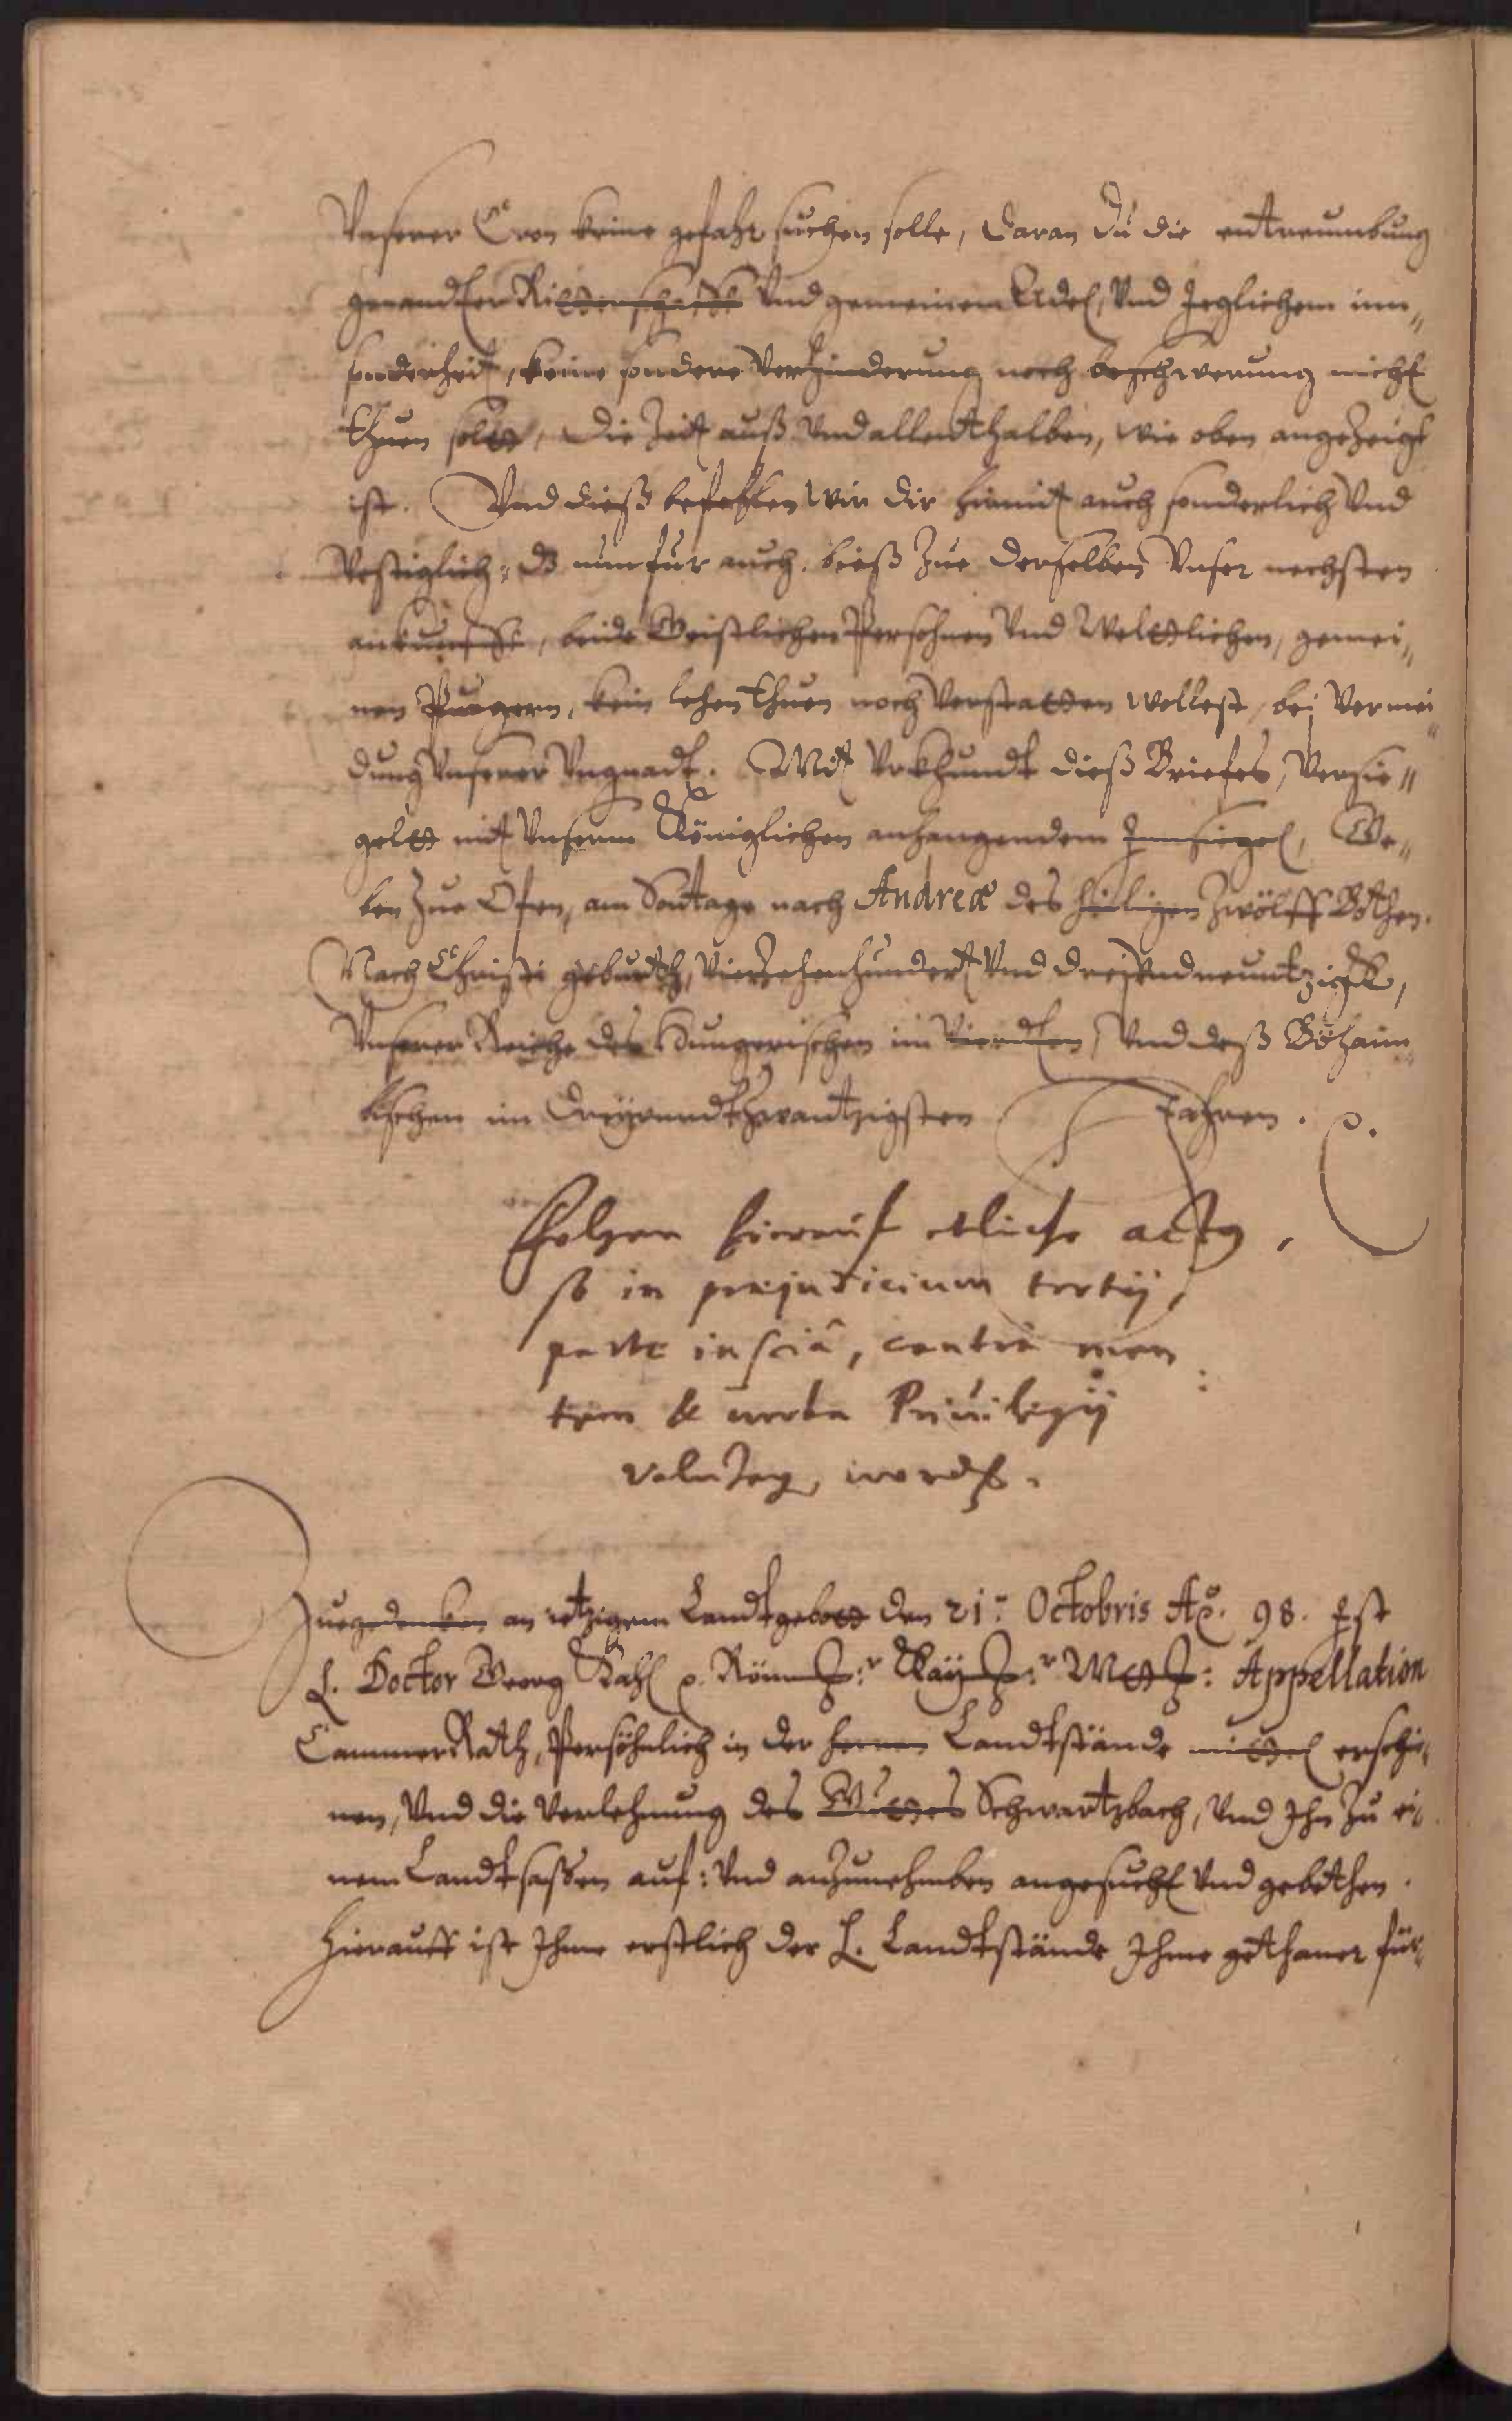 Vnserer Cron keine gefahr suchen solle, daran du die entreumbung
genandter Ritterschafft Vnd gemeinem Adel, Vnd Jeglichem inn„
sonderheit, keine sondere Verhinderung noch beschwerung nicht
thuen solst, Die Zeit auß Vnd allenthalben, wie oben angezeigt
ist. Vnd dieß befehlen Wir dir hiemit auch sonderlich Vnd
Vestiglich, das nun für auch, bieß Zue derselben Vnser nechsten
ankunfft, beide Geistlichen Persohnen Vnd Weltlichen, gemei„
nen Purgern, kein lehen thuen noch Verstatten wollest, bei Vermei„
dung Vnserer Vngnadt. Mit Vrkhundt dieß Briefes, Versie„
gelt mit Vnserm Königlichen anhangendem Innsiegel, Ge„
ben Zue Ofen, am Sontage nach Andreæ des heiligen Zwölff Bothen.
Nach Christi geburth, Vierzehenhundert Vnd dreiVndneuntzigk,
Vnserer Reiche des Hungerischen im Vierdten, Vnd deß Böhaim„
bischen im Dreyvndtzwantzigsten Jahren.
Folgen hierauf etliche actus,
so in præjudicium tertij,
parte insciâ, contrà men
tem & verba Priuilegij
 worden.
Zuegedenken an ietzigem Landtgebott den 21. Octobris Ao. 98. Ist
H. Doctor Georg Kahl Röm: Kay: Mtt: Appellation
Cammer Rath, Persöhnlich in der herren Landtstände mittel erschie„
nen, Vnd die Verlehnung des Guttes Schwartzbach, Vnd Ihn zu ei„
nem Landtsassen auf: Vnd anzunehmben angesucht Vnd gebethen.
Hierauff ist Ihme erstlich der H. Landtstände Ihme gethaner für„